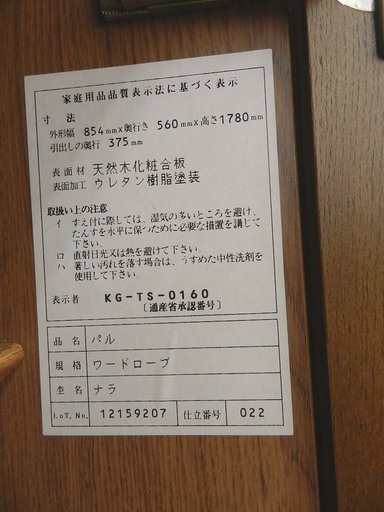 家庭用品品質表示法に基づく表示
寸法
外形幅 854mm×奥行き 560mm×高さ1780mm
引出しの奥行 375mm
表面材 天然木化粧合板
表面加工 ウレタン樹脂塗装
取扱い上の注意
イ すえ付に際しては、湿気の多いところを避け、
たんすを水平に保つために必要な措置を講じて
下さい。
ロ 直射日光又は熱を避けて下さい。
ハ 著しい汚れを落す場合は、うすめた中性洗剤を
使用して下さい。
表示者 KG-TS-0160
〔通産省承認番号〕
品名 パル
規格 ワードローブ
杢名 ナラ
LoT, No. 12159207 仕立番号 022